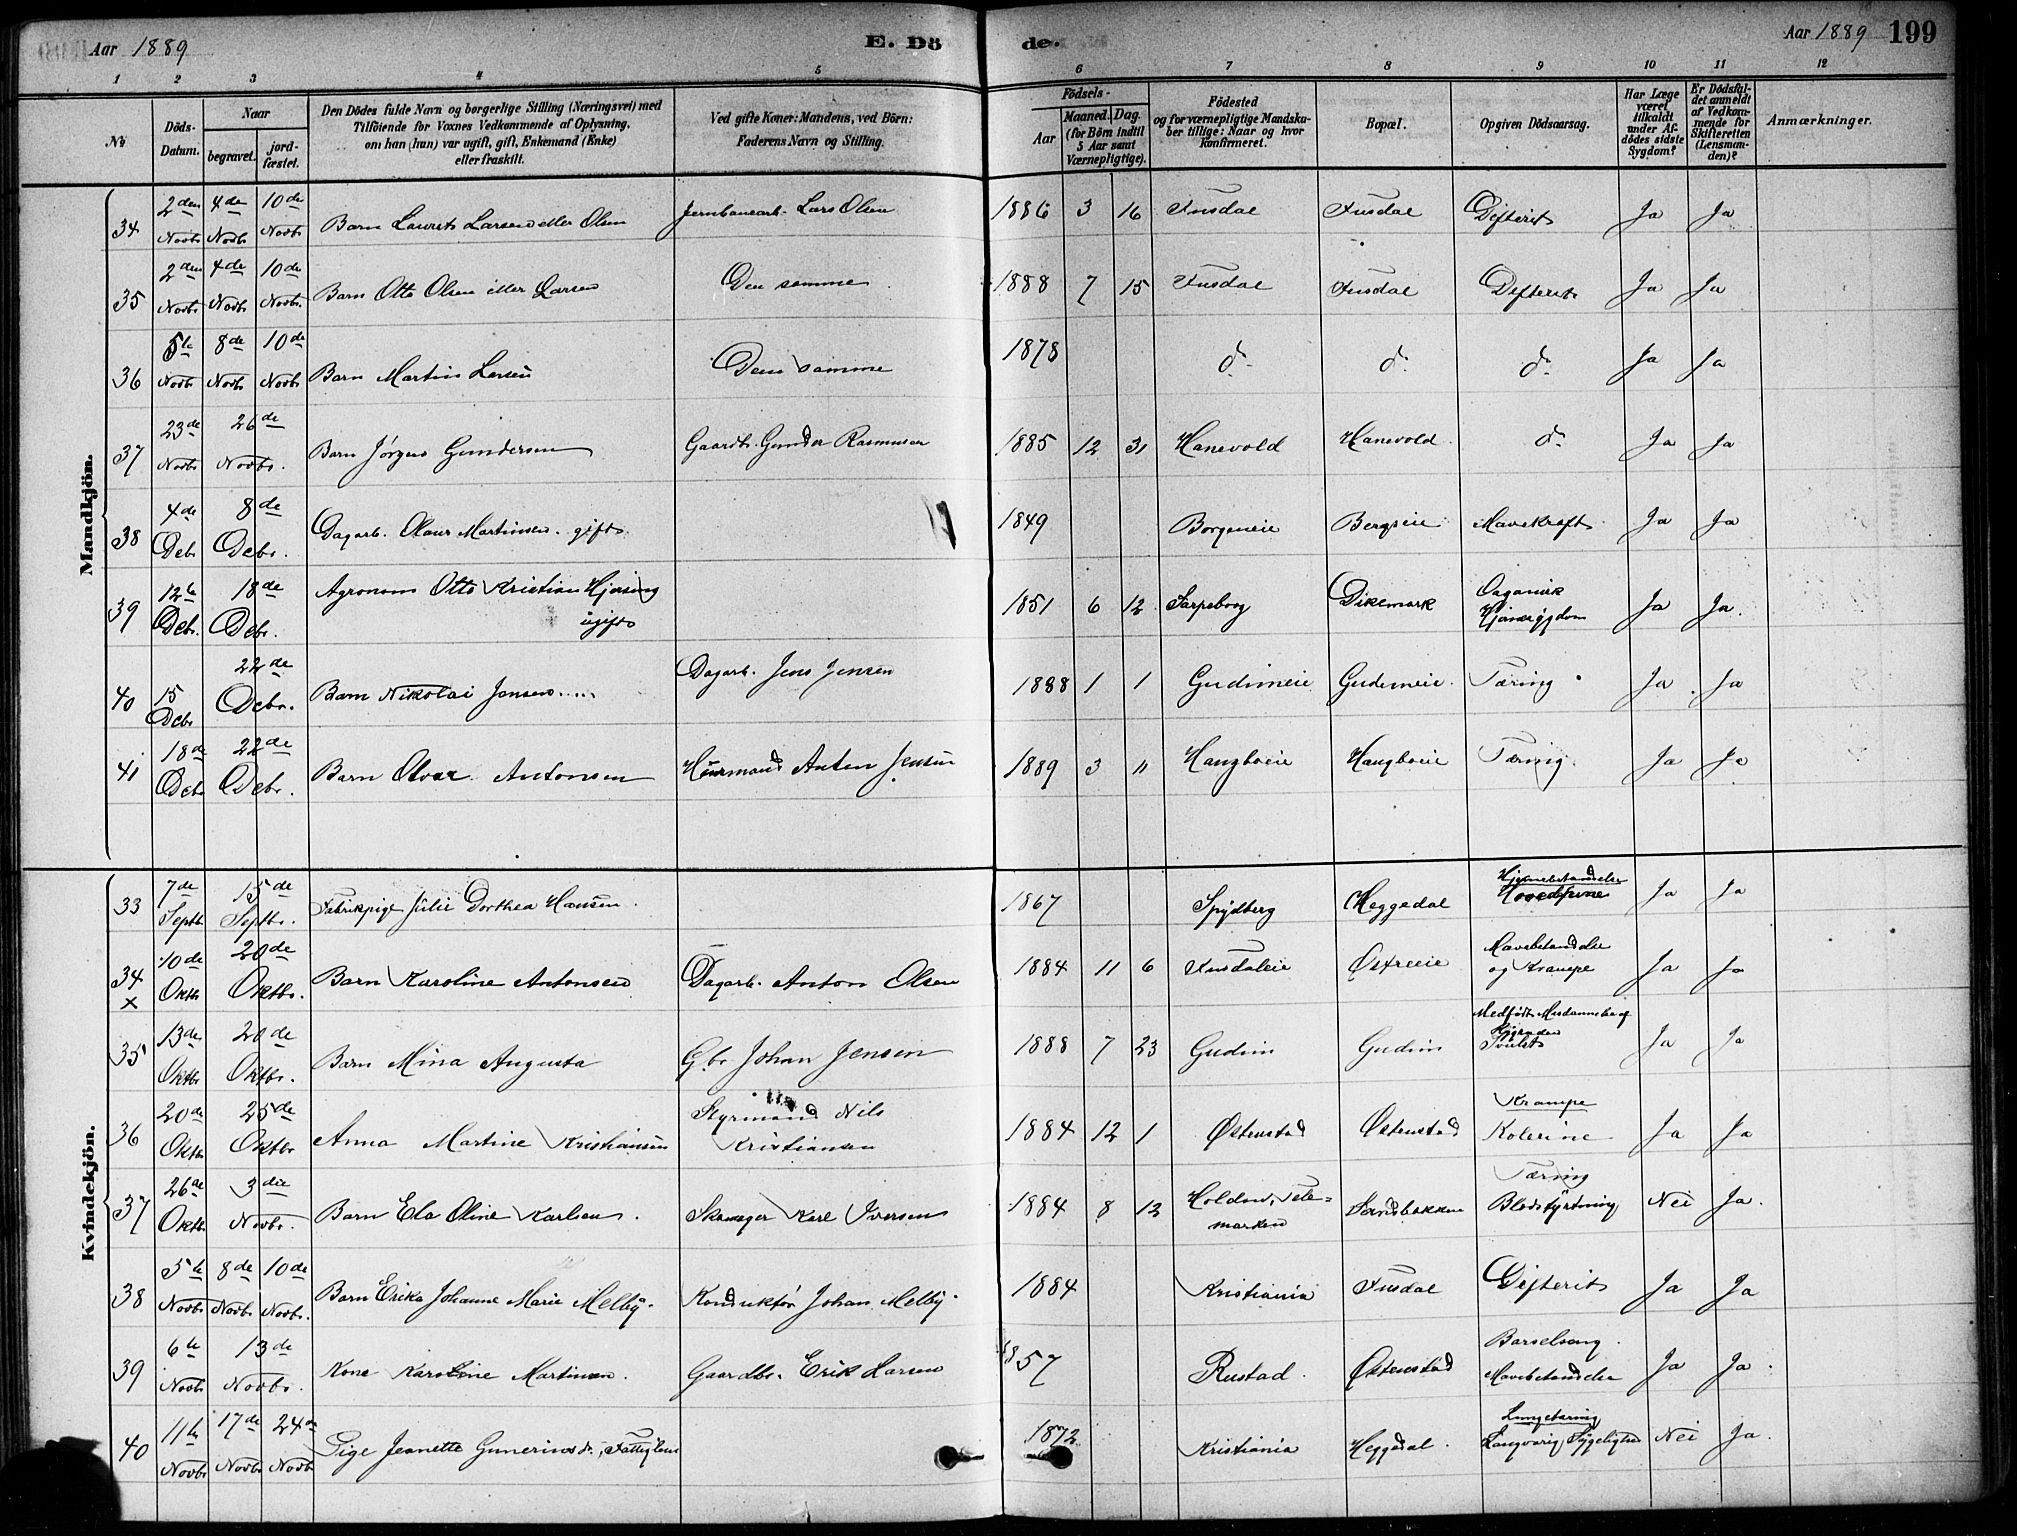 Aar 1889 E. Dö de. Aar 1889 199
1 2 3 4 5 6 7 8 9 10 11 12
No
Döds-Datum.
Naar
begravet.
jord-fæstet.
Den Dödes fulde Navn og borgerlige Stilling (Næringsvei) med
Tilföiende for Voxnes Vedkommende af Oplysning,
om han (hun) var ugift, gift, Enkemand (Enke)
eller fraskilt.
Ved gifte Koner: Mandens, ved Börn:
Faderens Navn og Stilling.
Födsels-
Aar
Maaned. Dag.
(for Börn indtil
5 Aar samt
Værnepligtige).
Födested
og for værnepligtige Mandska-
ber tillige: Naar og hvor
konfirmeret.
Bopæl.
Opgiven Dödsaarsag.
Har Læge
været
tilkaldt
under Af-
dödes sidste
Sygdom?
Er Dödsfal-
det anmeldt
af Vedkom-
mende for
Skifteretten
(Lensman-
den)?
Anmærkninger.
Mandkjön.
34 2den Novbr 4de Novbr 10de Novbr Barn Laurits Larsen eller Olsen Jernbanearb. Lars Olsen 1886 3 16 Fusdal Fusdal Difterit Ja Ja
35 2den Novbr 4de Novbr 10de Novbr. Barn Otto Olsen eller Larsen Den samme 1888 7 15 Fusdal Fusdal Difterit Ja Ja
36 5te Novbr 8de Novbr 10de Novbr Barn Martin Larsen Den samme 1878 do do do Ja Ja
37 23de Novbr 26de Novbr. Barn Jörgen Gundersen Gaardbr. Gunder Rasmusen 1885 12 31 Hanevold Hanevold do Ja Ja
38 4de Debr 8de Debr. Dagarb. Olaus Martinsen. gift 1849 Borgeneie Bergseie Mavekræft Ja Ja
39 12te Debr. 18de Debr. Agronom Otto Kristian Hjersing
ugift 1851 6 12 Sarpsborg Dikemark Organisk
Hjertesygdom Ja Ja.
40 15 Debr 22de Debr. Barn Nikolai Jensen Dagarb. Jens Jensen 1888 1 1 Gudimeie Gudimeie Tæring Ja Ja
41 18de Debr 22de Debr. Barn Olvar Antonsen Huusmand Anton Jensen 1889 3 11 Haugboeie Haugboeie Tæring Ja Ja
Kvindekjön.
33 7de Septbr 15de Septbr. Fabrikpige Julie Dorthea Hansen. 1867 Spydberg Heggedal Hjernebetændelse Ja Ja
34 x 10de Oktbr 20de Oktbr. Barn Karoline Antonsen Dagarb. Anton Olsen 1884 11 6 Fusdaleie Østreeie Mavebetændelse
og Krampe Ja Ja
35 13de Oktbr 20de Oktbr. Barn Mina Augusta Gbr. Johan Jensen 1888 7 23 Gudim Gudim Medfödt Misdannelse af Ja Ja
36 20de Oktbr 25de Oktbr Anna Martine Kristiansen Styrmand Nils
Kristiansen 1884 12 1 Østenstad Østenstad Krampe
Kolerine Ja Ja
37 26de Oktbr. 3die Novbr. Barn Ela Oline Karlsen. Skomager Karl Iversen 1884 8 12 Holden, Tele-
marken Sandbakken Tæring
Blodstyrtning Nei Ja.
38 5te Novbr. 8de Novbr. 10de Novbr. Barn Erika Johanne Marie Melby. Konduktør Johan Melby. 1884 Kristiania Fusdal Difterit Ja Ja
39 6te Novbr 13de Novbr. Kone Karoline Martinsen. Gaardbr. Erik Larsen 1857 Rustad. Østenstad Barselseng.
Mavebetændelse Ja Ja.
40 11te Novbr 17de Novbr 24de Novbr Pige Jeanette Gunerius d., Fattiglem 1872 Kristiania Heggedal. Lungetæring
Langvarig Sygelighed Nei Ja.